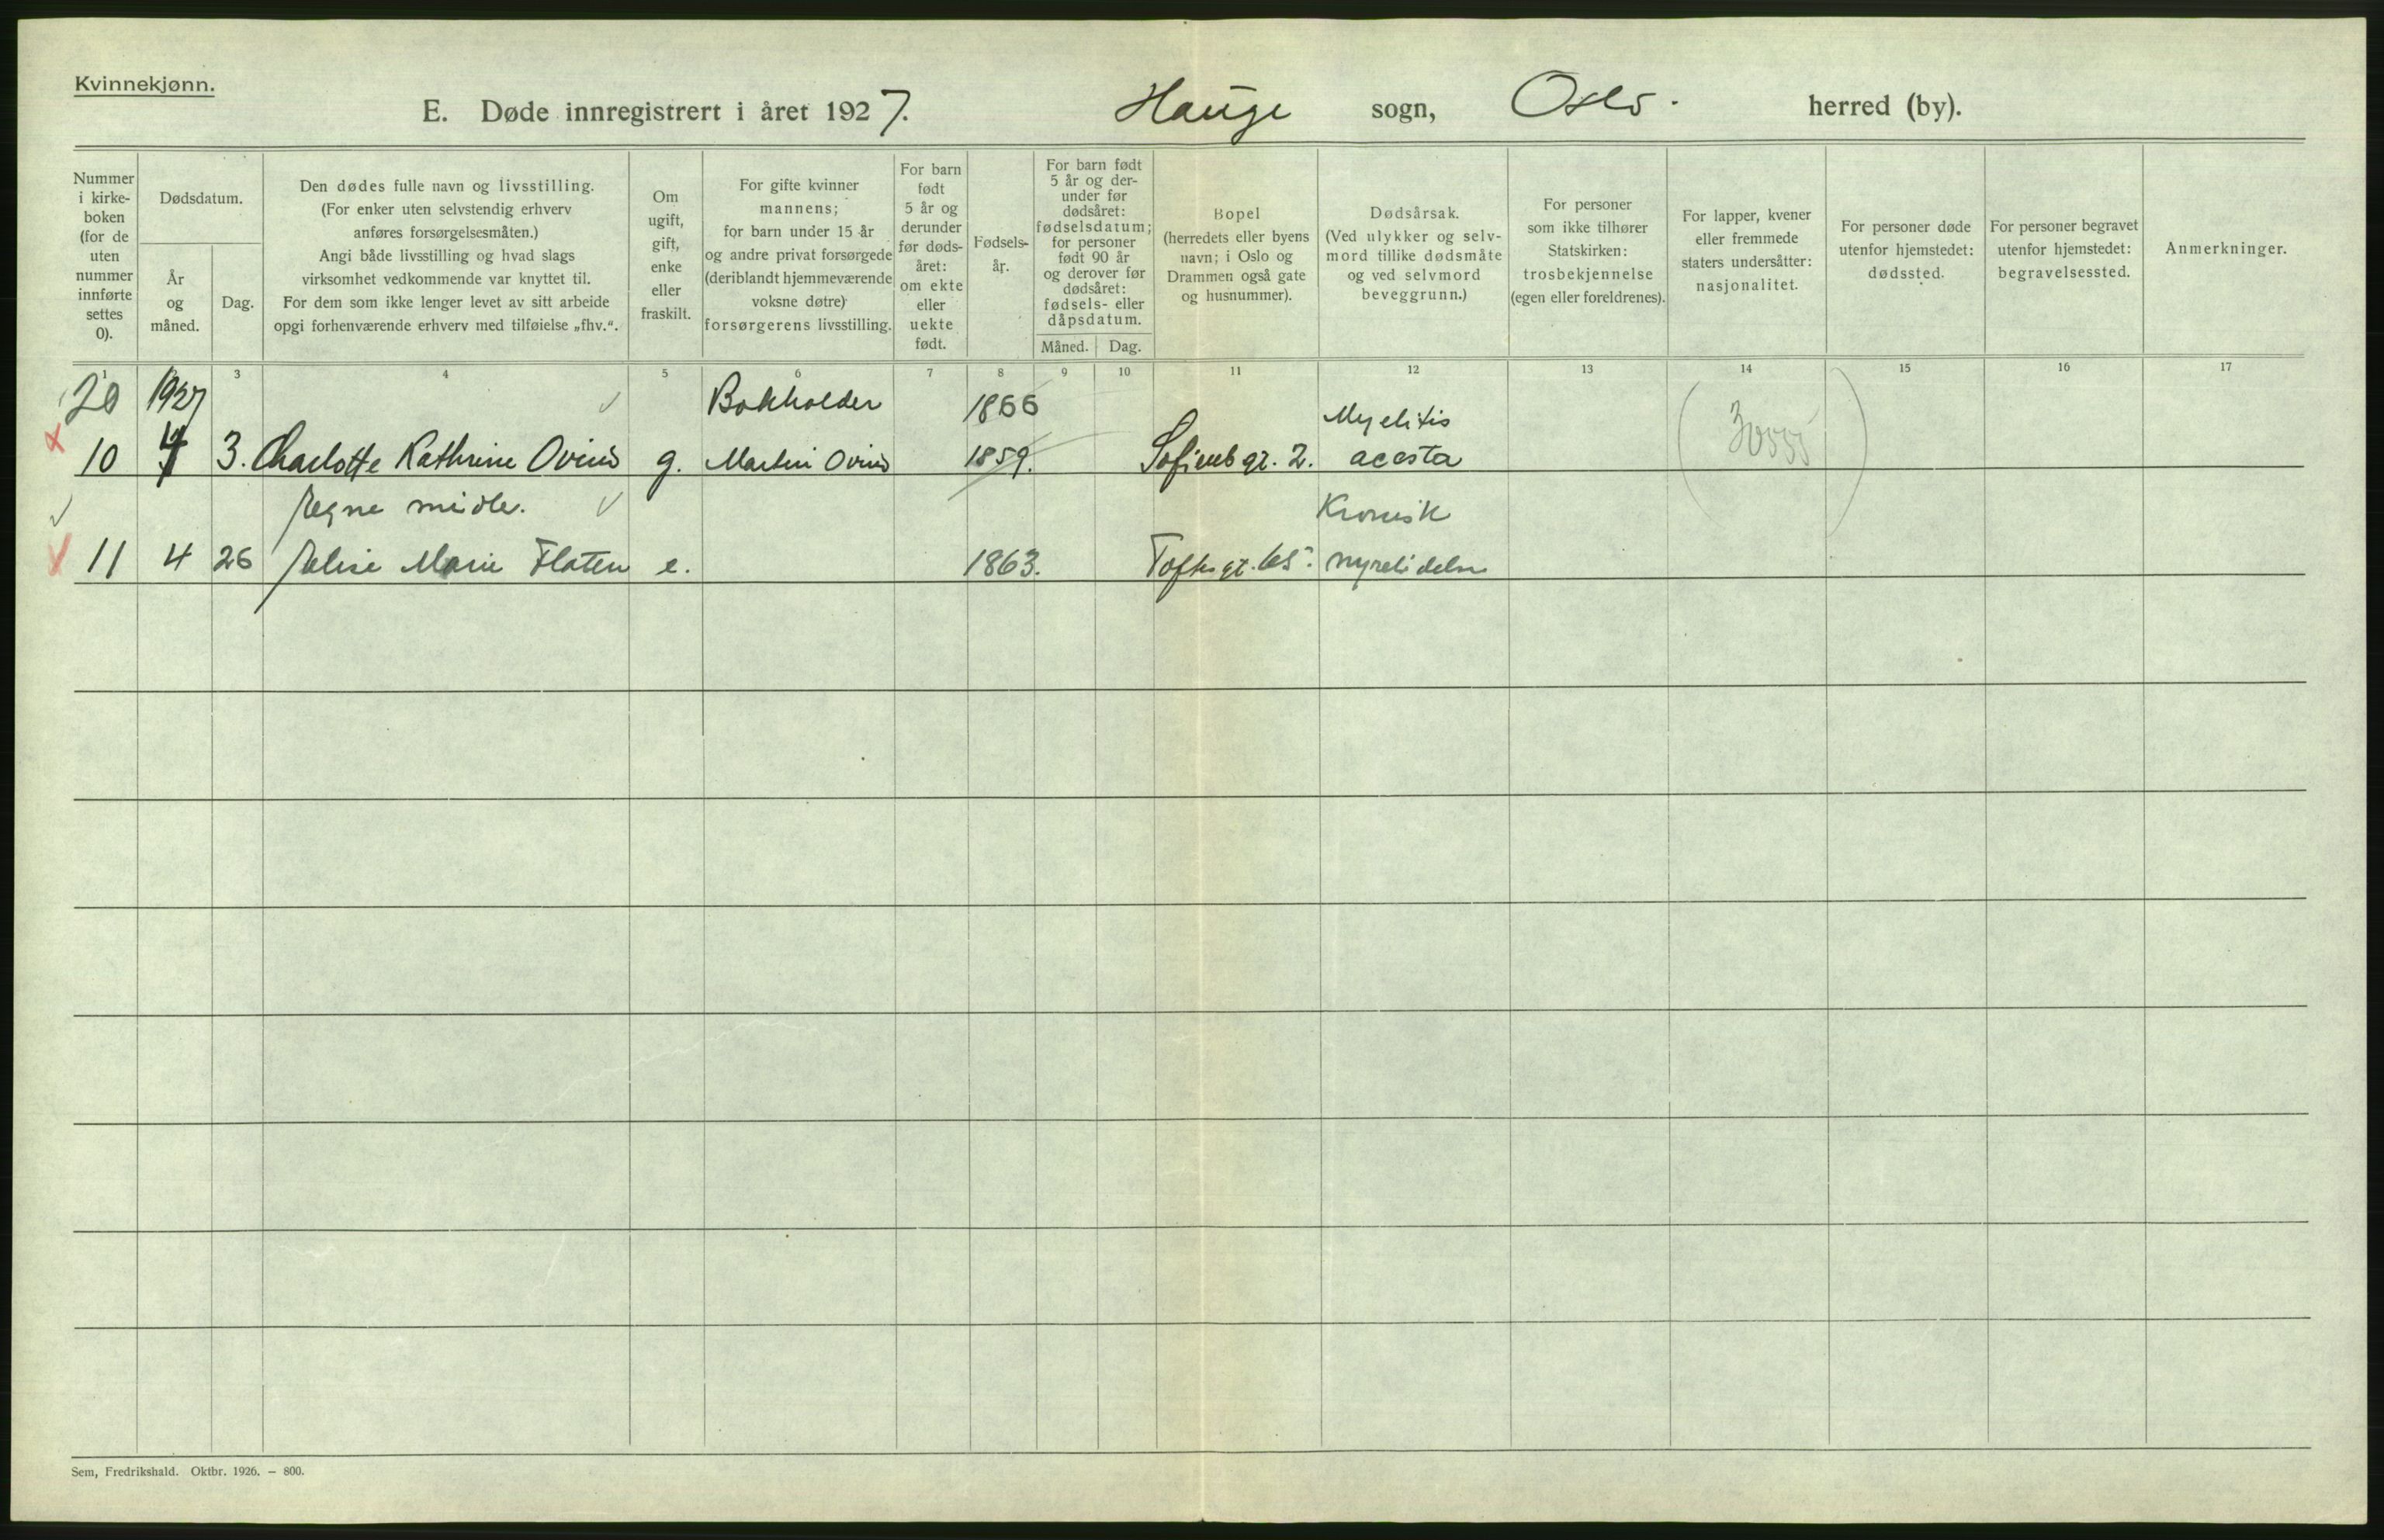 Kvinnekjønn.
E. Døde innregistrert i året 1927. Hauge sogn, Oslo. herred (by).
Nummer i kirke-boken (for de uten nummer innførte settes 0).
Dødsdatum.
År og måned.
Dag.
Den dødes fulle navn og livsstilling.
(For enker uten selvstendig erhverv
anføres forsørgelsesmåten.)
Angi både livsstilling og hvad slags
virksomhet vedkommende var knyttet til.
For dem som ikke lenger levet av sitt arbeide
opgi forhenværende erhverv med tilføielse „fhv.“.
Om
ugift,
gift,
enke
eller
fraskilt.
For gifte kvinner
mannens;
for barn under 15 år
og andre privat forsørgede
(deriblandt hjemmeværende
voksne døtre)
forsørgerens livsstilling.
For barn
født
5 år og
derunder
før døds-
året:
om ekte
eller
uekte
født.
Fødsels-
år.
For barn født
5 år og der-
under før
dødsåret:
fødselsdatum;
for personer
født 90 år
og derover før
dødsåret:
fødsels- eller
dåpsdatum.
Måned. Dag.
Bopel
(herredets eller byens
navn; i Oslo og
Drammen også gate
og husnummer).
Dødsårsak.
(Ved ulykker og selv-
mord tillike dødsmåte
og ved selvmord
beveggrunn.)
For personer
som ikke tilhører
Statskirken:
trosbekjennelse
(egen eller foreldrenes).
For lapper, kvener
eller fremmede
staters undersåtter:
nasjonalitet.
For personer døde
utenfor hjemstedet:
dødssted.
For personer begravet
utenfor hjemstedet:
begravelsessted.
Anmerkninger.
1 3 4 5 6 7 8 9 10 11 12 13 14 15 16 17
20 1927 Bokholder 1866 Myelitis
10 4 3. Charlotte Kathrine Ovius g. Martin Ovius 1859. Sofienbgt. 2. acosta
egne midle. Kronisk
11 4 26 Elise Marie Flaten e. 1863. Toftesgt. 65. nyrelidelse
Sem, Fredrikshald. Oktbr. 1926. — 800.